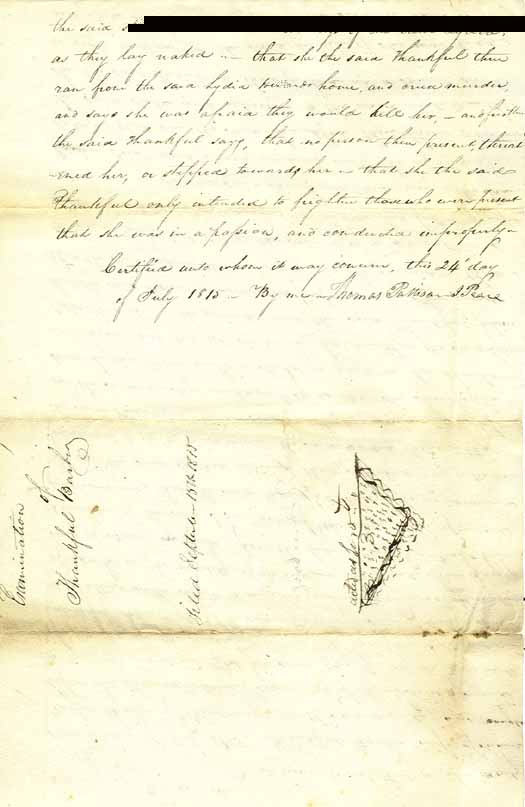 the said
as they lay naked – that she the said Thankful then
ran from the said Lydia home, and cried murder,
and says she was afraid they would kill her, – and further
the said Thankful says, that no person then present, threat
-ened her, or stepped towards her – that she the said
Thankful only intended to frighten those who were present
that she was in a passion, and conducted improperly –
Certified unto whom it may concern, this 24th day
of July 1815 – By me – Thomas J Peace
Examination of
Thankful
Filed Septbr 15th 1815